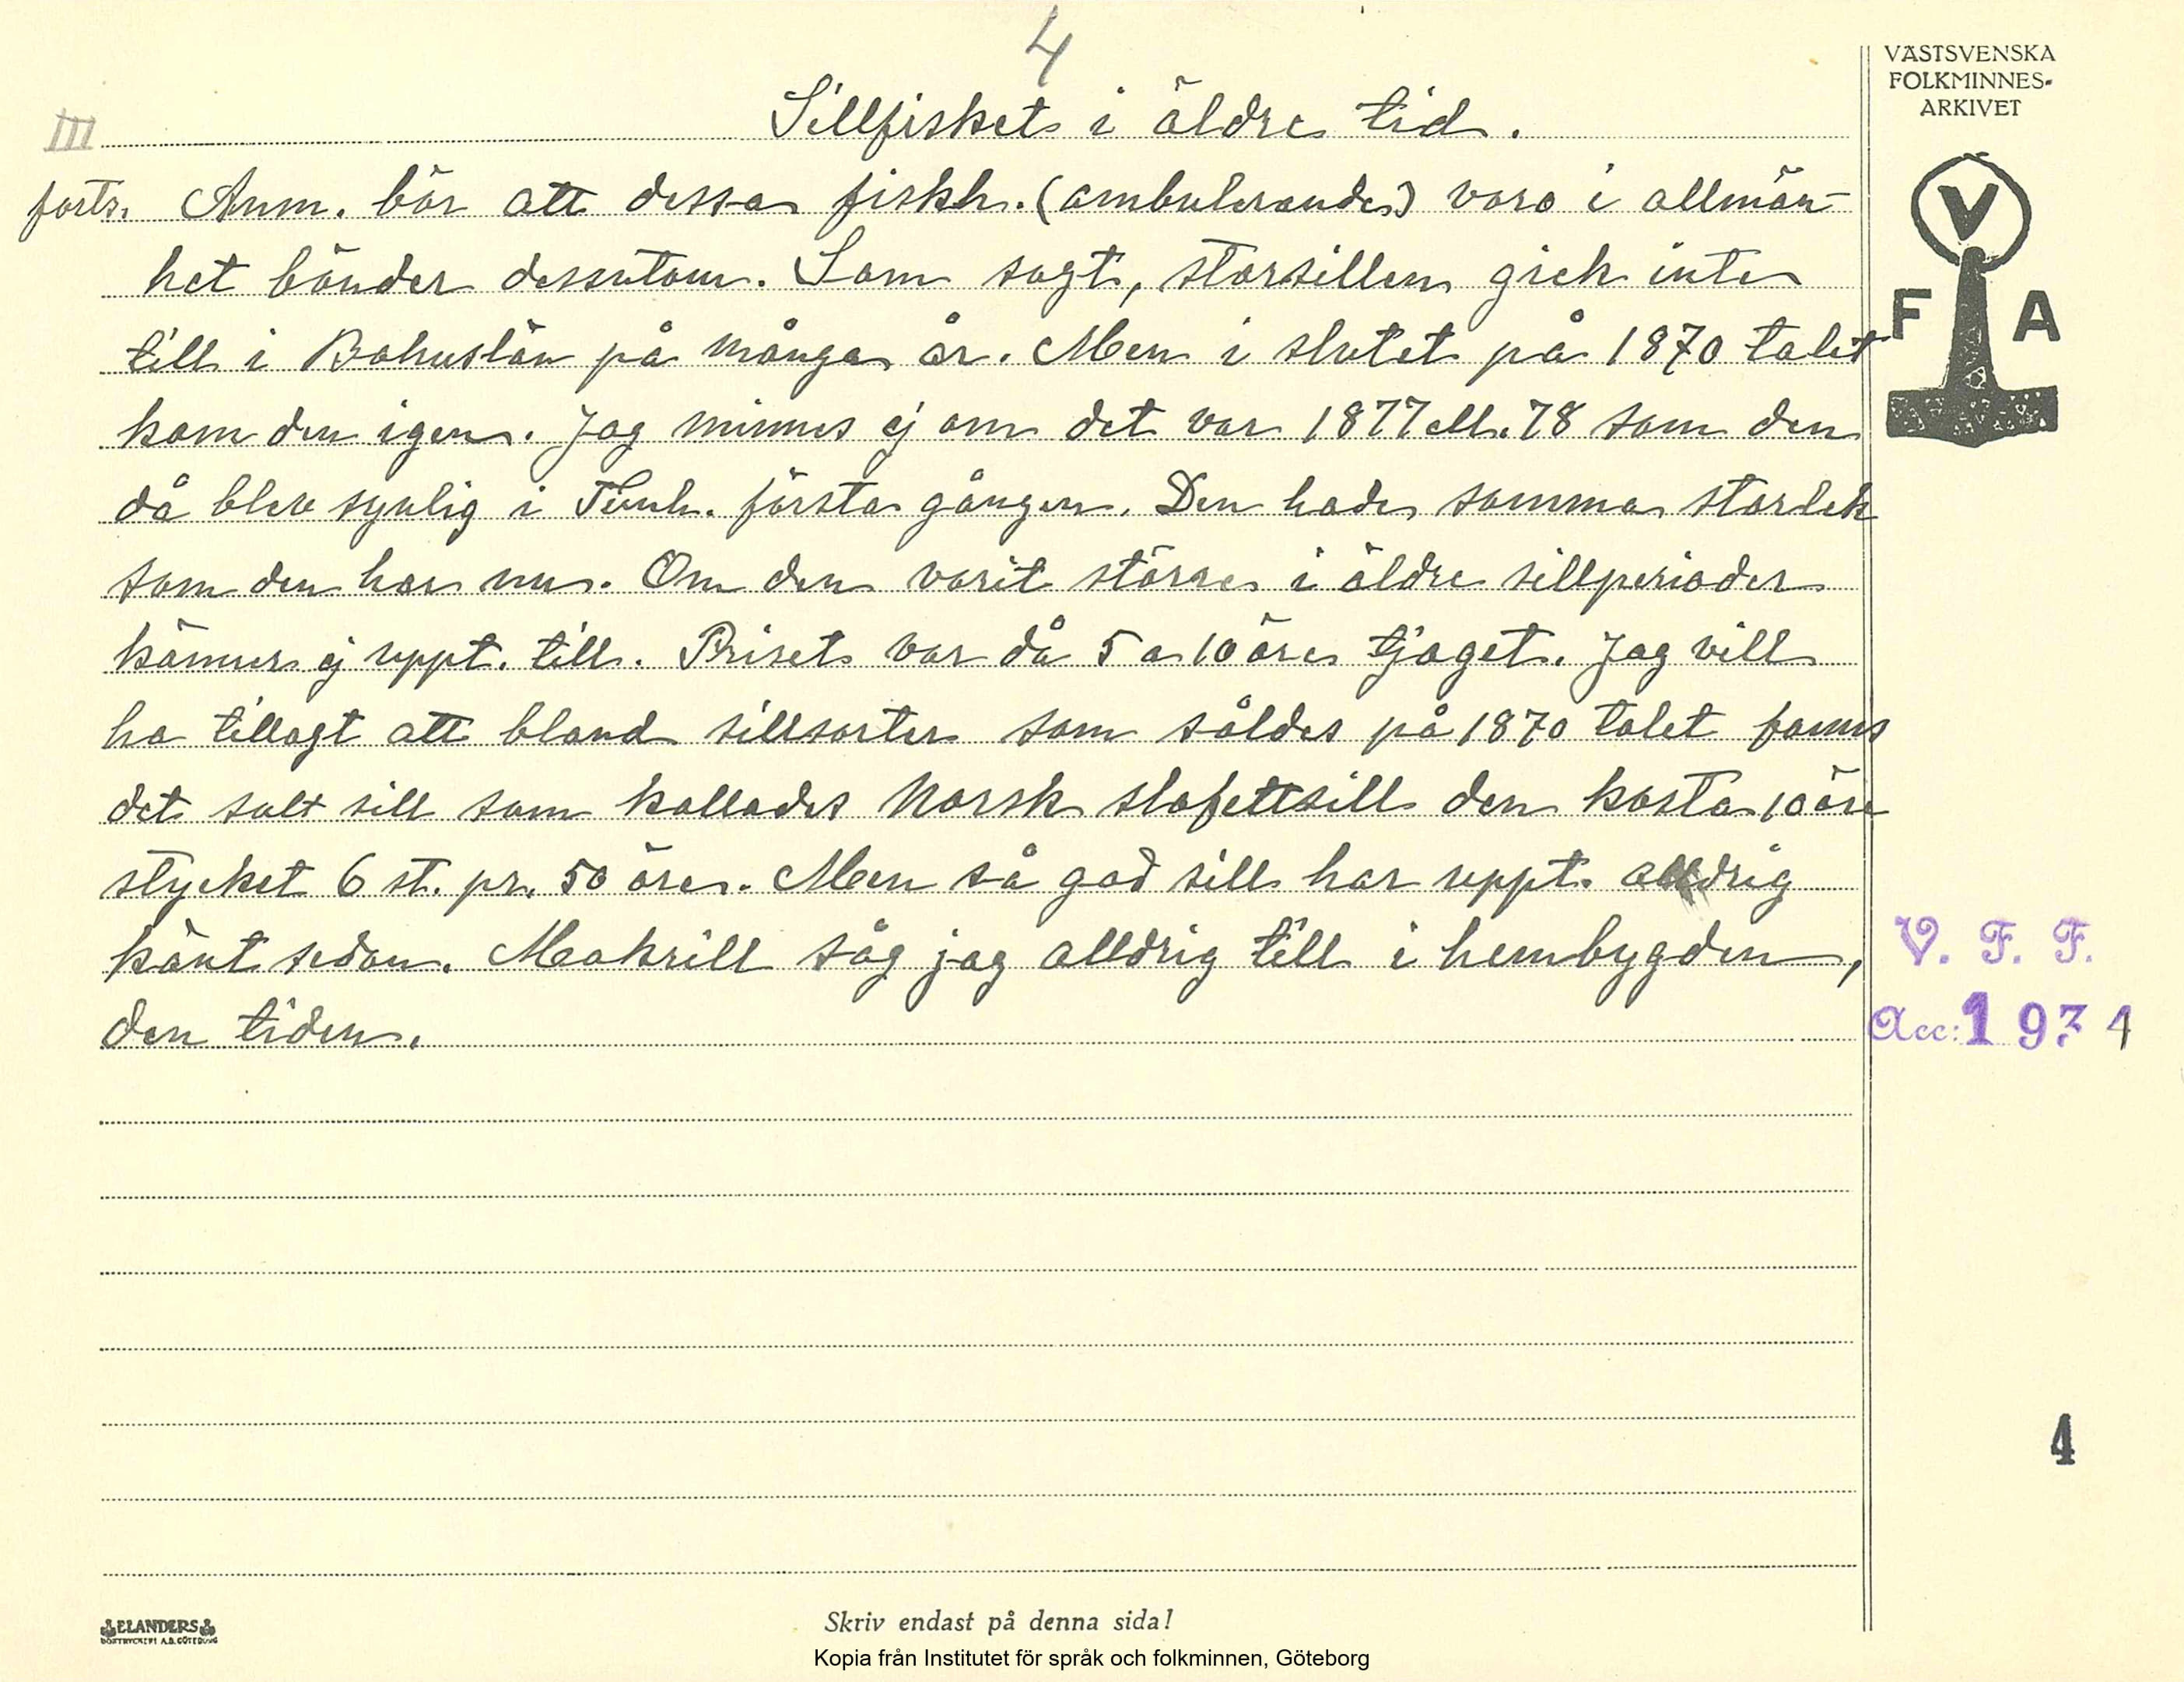 4
VÄSTSVENSKA
FOLKMINNES-
ARKIVET
III
Sillfisket i äldre tid.
forts. Anm. bör att dessa fiskh. (ambulerande) voro i allmän-
het bönder dessutom. Som sagt, storsillen gick inte
till i Bohuslän på många år. Men i slutet på 1870 talet
kom den igen. Jag minnes ej om det var 1877 ell. 78 som den
då blev synlig i första gången. Den hade samma storlek
som den har nu. Om den varit större i äldre sillperioder
känner ej uppt. till. Priset var då 5 a 10 öre tjoget. Jag vill
ha tillagt att bland sillsorter som såldes på 1870 talet fanns
det salt sill som kallades Norsk slofettsill den kosta 10 öre
stycket 6 st. pr. 50 öre. Men så god sill har uppt. alldrig
känt sedan. Makrill såg jag alldrig till i hembygden,
den tiden.
V
F A
V. F. F.
Acc: 1934
4
ELANDERS
BOKTRYCKERI A.B. GÖTEBORG
Skriv endast på denna sida!
Kopia från Institutet för språk och folkminnen, Göteborg